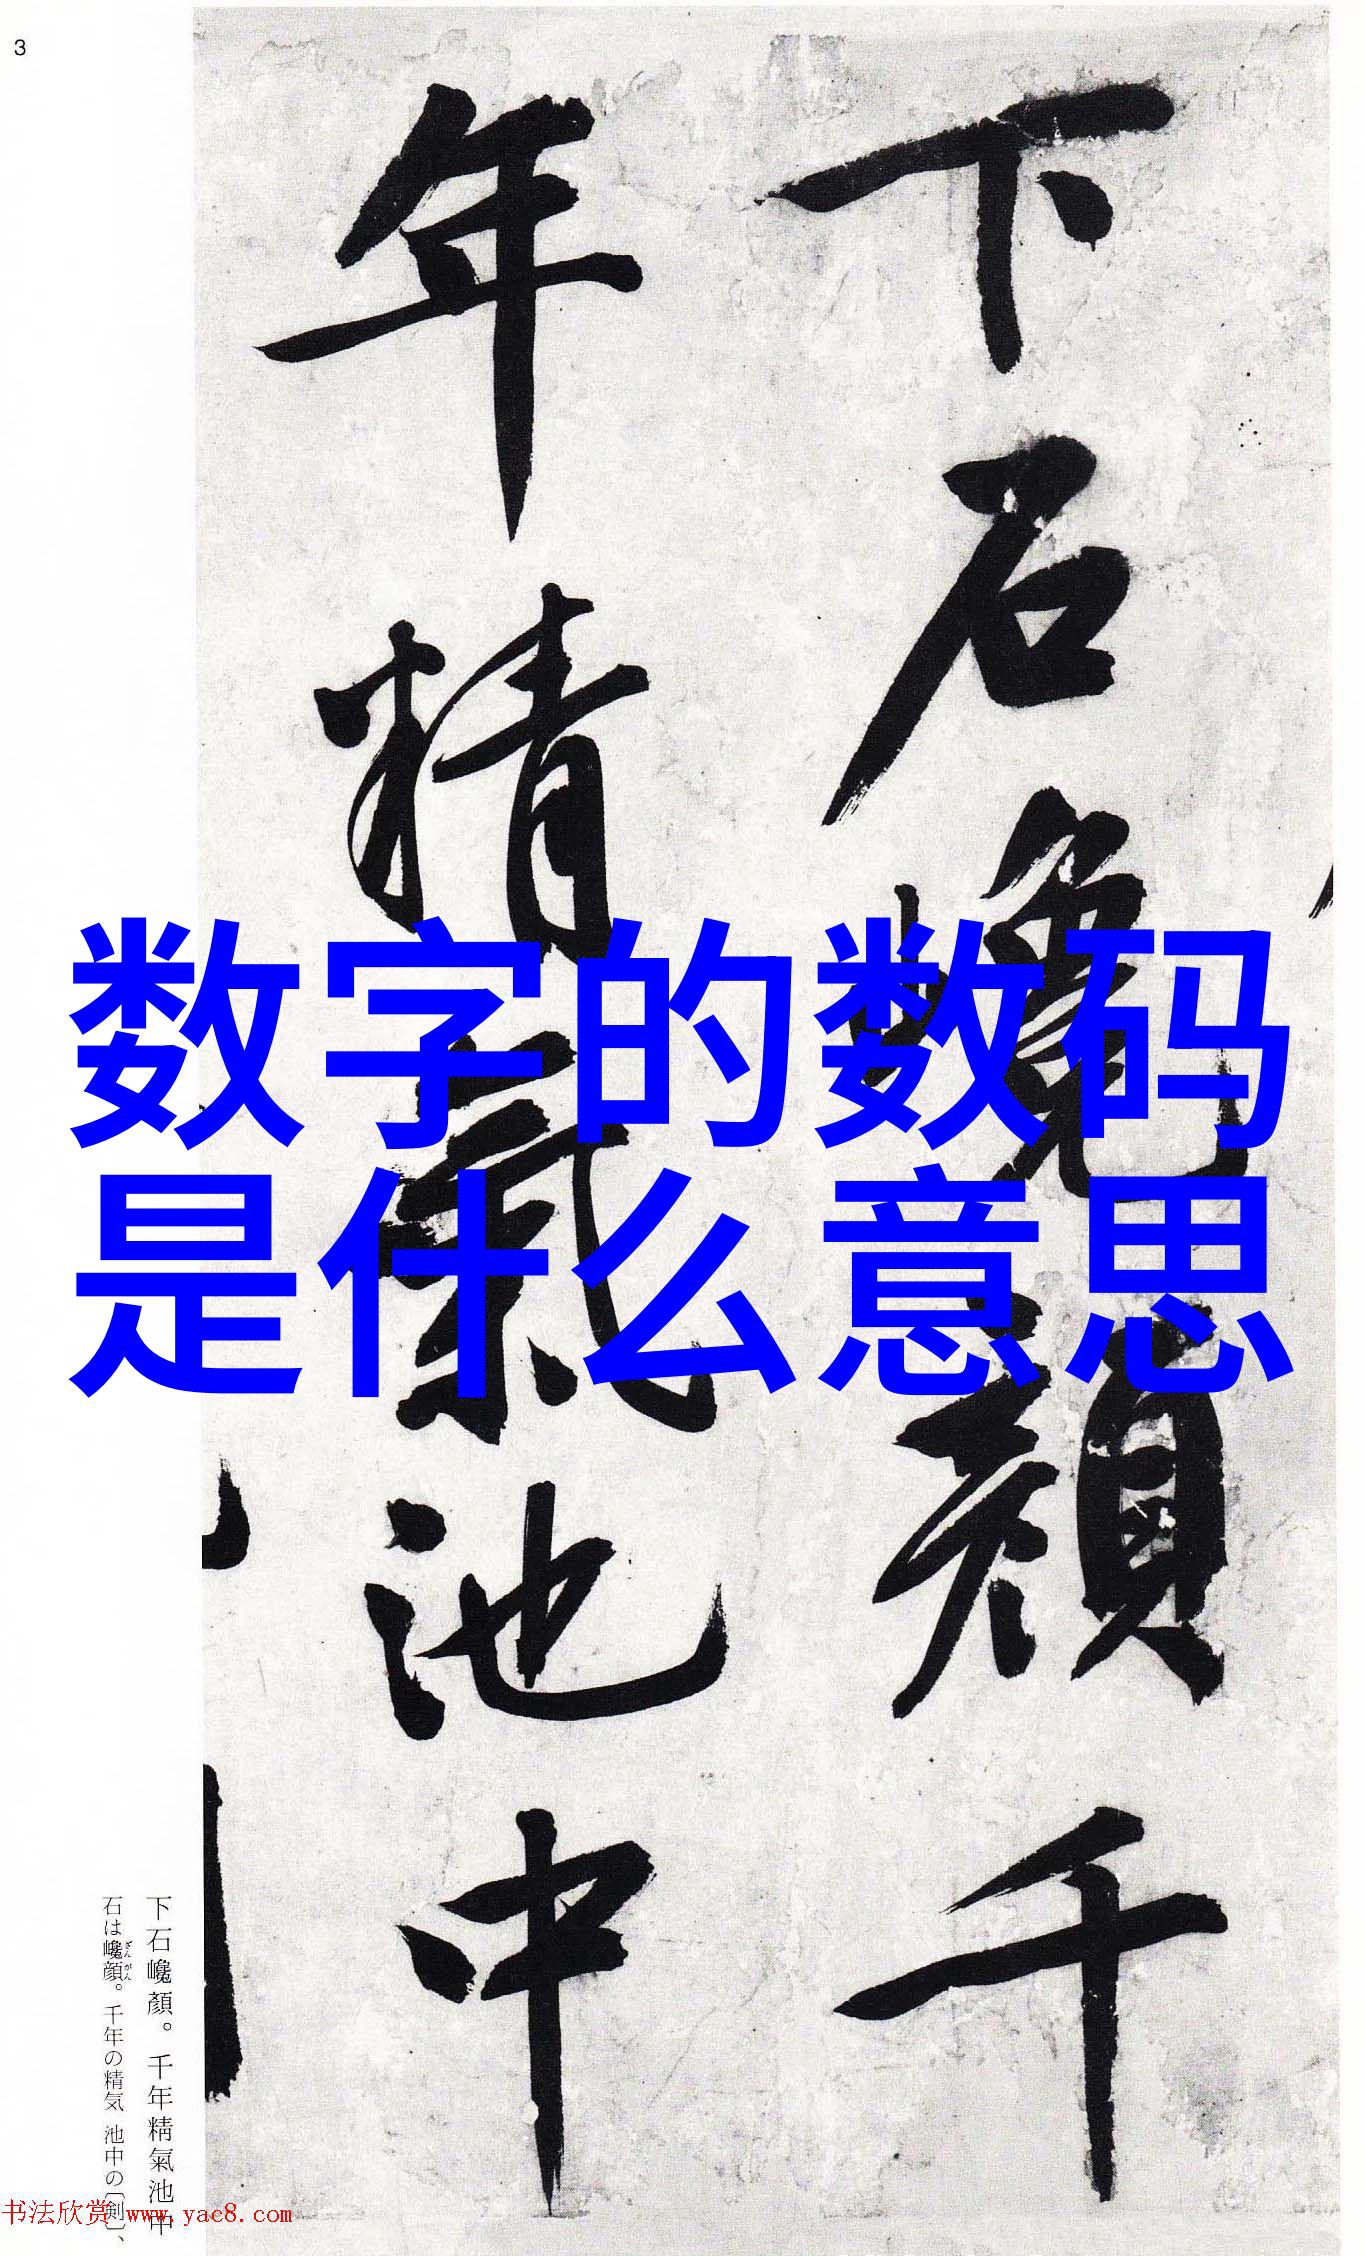 3
下石巉顏千
年精氣池中
数字的数码
是什么意思
下石巉顏。千年精氣池中
石は巉顔。千年の精気 池中の〔剣〕、
ざんがん
书法欣赏 www.yac8.com